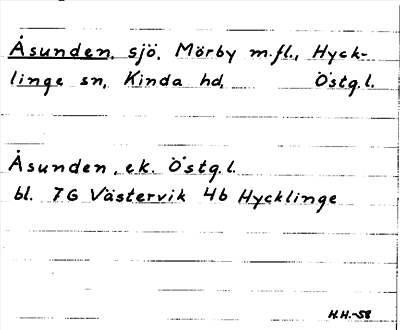 Åsunden, sjö, Mörby m.fl., Hyck-
linge sn, Kinda hd, Östg.l.
Åsunden, ek. Östg.l.
bl. 7G Västervik 4b Hycklinge
H.H.-58